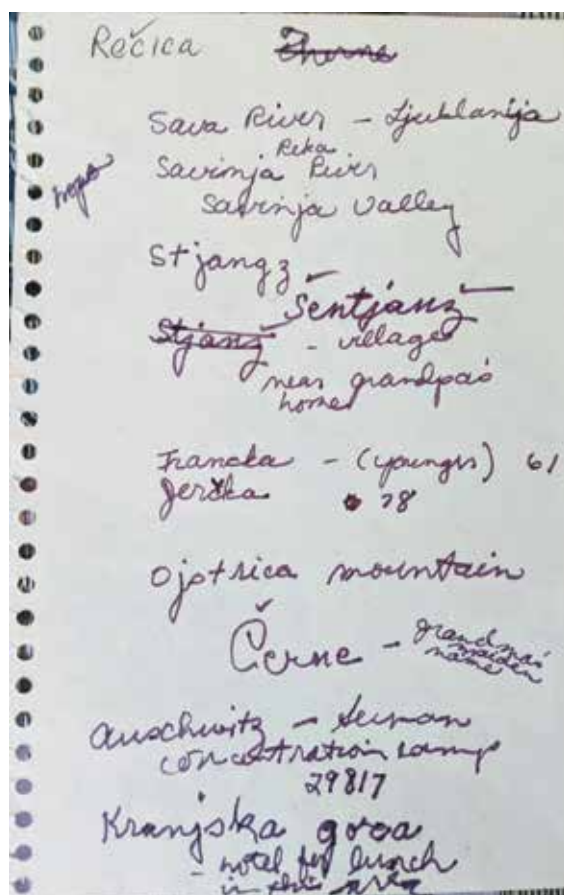 Rečica Zherne
Sava River - Ljublanija
Reka
hops Savinja River
Savinja Valley
Stjangz
Šentjanž
Stjanz - village
near grandpa's
home
Francka - (younger) 61
Jerčka 78
Ojstrica mountain
Černe - grandma's
maiden
name
Auschwitz - German
concentration camp
29817
Kranjska gora
- hotel for lunch
in this area